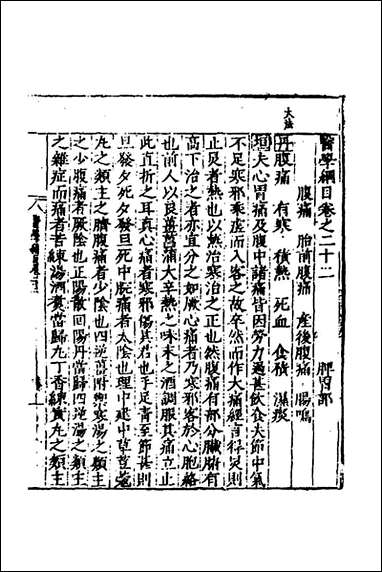 醫學綱目卷之二十二　脾胃部
腹痛　胎前腹痛　產後腹痛　腸鳴
大法
丹腹痛　有寒　積熱　死血　食積　濕痰
垣夫心胃痛及腹中諸痛皆因勞力過甚飲食失節中氣
不足寒邪乘虛而入客之故卒然而作大痛經言得炅則
止炅者熱也以熱治寒治之正也然腹痛有部分臟腑有
高下治之者亦宜分之如厥心痛者乃寒邪客於心胞絡
也前人以良薑菖蒲大辛熱之味末之酒調服其痛立止
此直折之耳真心痛者寒邪傷其君也手足青至節甚則
旦發夕死夕發旦死中脘痛者太陰也理中建中草荳蔻
丸之類主之臍腹痛者少陰也四逆薑附御寒湯之類主
之少腹痛者厥陰也正陽散回陽丹當歸四逆湯之類主
之雜症而痛者苦楝湯酒煮當歸丸丁香楝實丸之類主